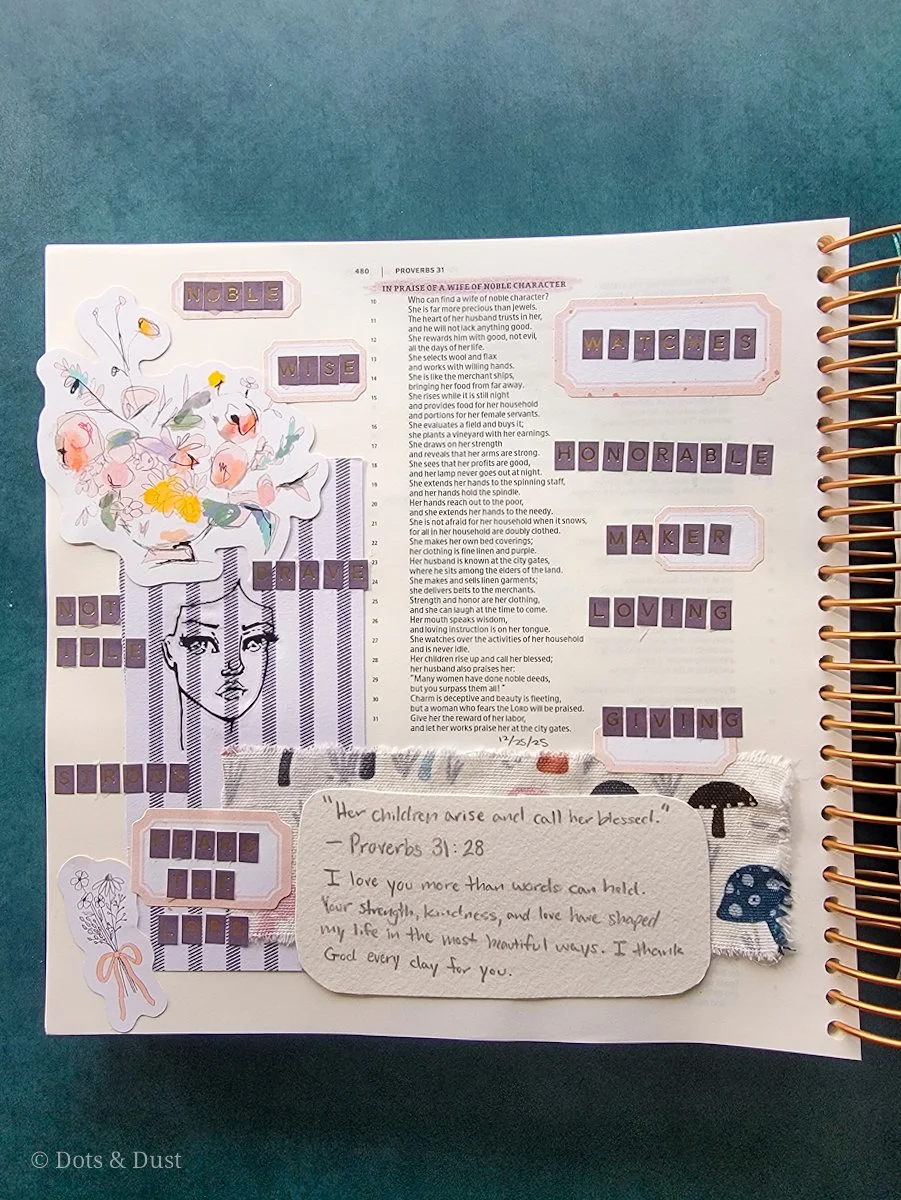 480 | PROVERBS 31
IN PRAISE OF A WIFE OF NOBLE CHARACTER
10 Who can find a wife of noble character?
She is far more precious than jewels.
11 The heart of her husband trusts in her,
and he will not lack anything good.
12 She rewards him with good, not evil,
all the days of her life.
13 She selects wool and flax
and works with willing hands.
14 She is like the merchant ships,
bringing her food from far away.
15 She rises while it is still night
and provides food for her household
and portions for her female servants.
16 She evaluates a field and buys it;
she plants a vineyard with her earnings.
17 She draws on her strength
and reveals that her arms are strong.
18 She sees that her profits are good,
and her lamp never goes out at night.
19 She extends her hands to the spinning staff,
and her hands hold the spindle.
20 Her hands reach out to the poor,
and she extends her hands to the needy.
21 She is not afraid for her household when it snows,
for all in her household are doubly clothed.
22 She makes her own bed coverings;
her clothing is fine linen and purple.
23 Her husband is known at the city gates,
where he sits among the elders of the land.
24 She makes and sells linen garments;
she delivers belts to the merchants.
25 Strength and honor are her clothing,
and she can laugh at the time to come.
26 Her mouth speaks wisdom,
and loving instruction is on her tongue.
27 She watches over the activities of her household
and is never idle.
28 Her children rise up and call her blessed;
her husband also praises her:
29 "Many women have done noble deeds,
but you surpass them all!"
30 Charm is deceptive and beauty is fleeting,
but a woman who fears the LORD will be praised.
31 Give her the reward of her labor,
and let her works praise her at the city gates.
12/25/25
NOBLE
WISE
BRAVE
NOT
IDLE
STRONG
FEARS
THE
LORD
WATCHES
HONORABLE
MAKER
LOVING
GIVING
"Her children arise and call her blessed."
— Proverbs 31:28
I love you more than words can held.
Your strength, kindness, and love have shaped
my life in the most beautiful ways. I thank
God every day for you.
© Dots & Dust